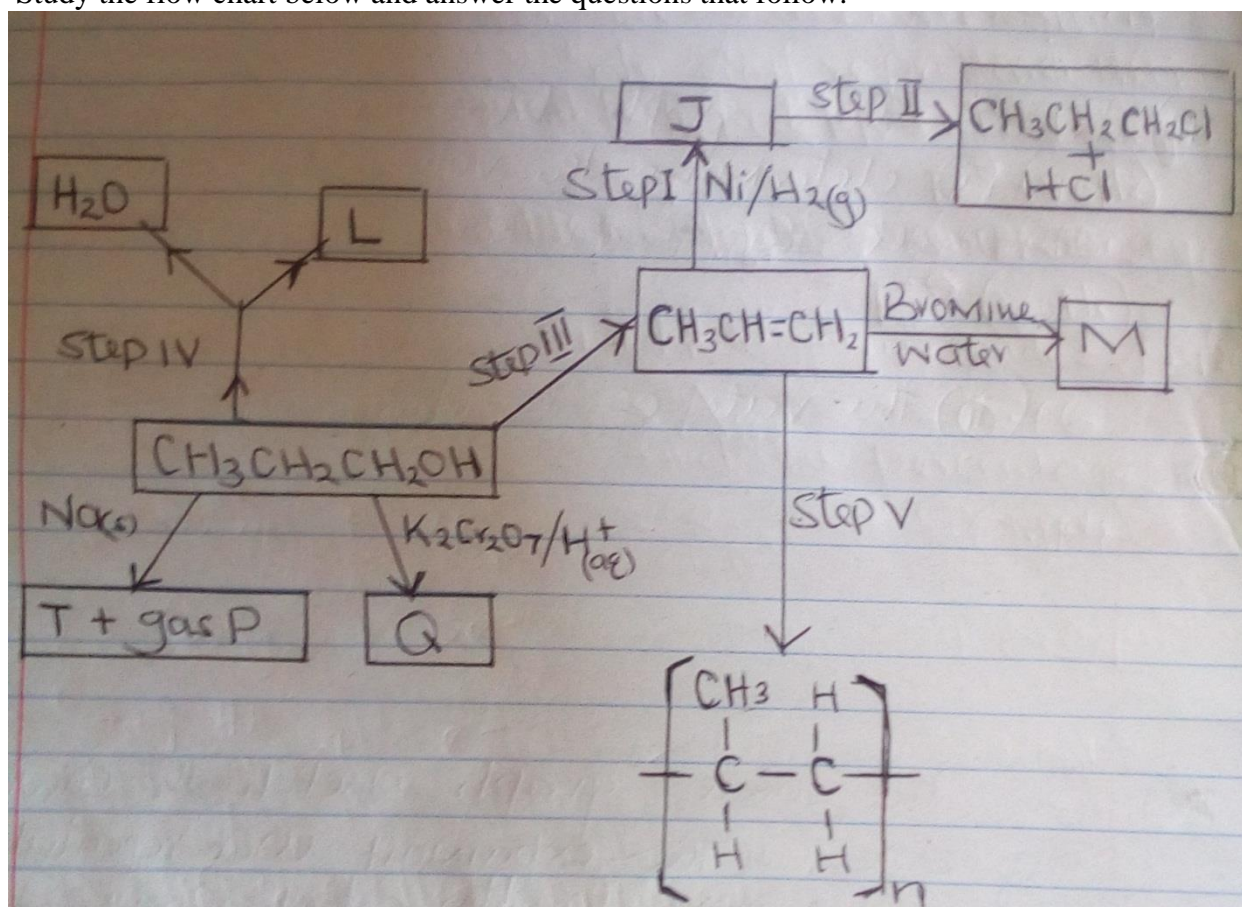 Study the flow chart below and answer the questions that follow.
J
Step II
CH3CH2CH2Cl
+
HCl
Step I
Ni/H2(g)
H2O
L
Step IV
Step III
CH3CH=CH2
Bromine
water
M
CH3CH2CH2OH
Na(s)
K2Cr2O7/H+(aq)
Step V
T + gas P
Q
CH3 H
C – C
H H
n